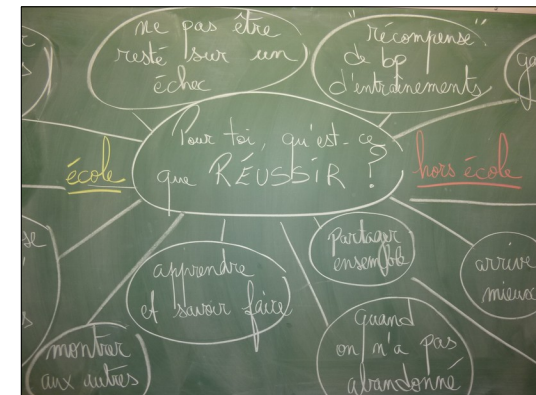 ne pas être
resté sur un
échec
"récompense"
de bp
d'entraînements
Pour toi, qu'est-ce
que RÉUSSIR ?
école
hors école
apprendre
et savoir faire
Partager
ensemble
arrive
mieux
montrer
aux autres
quand
on n'a pas
abandonné